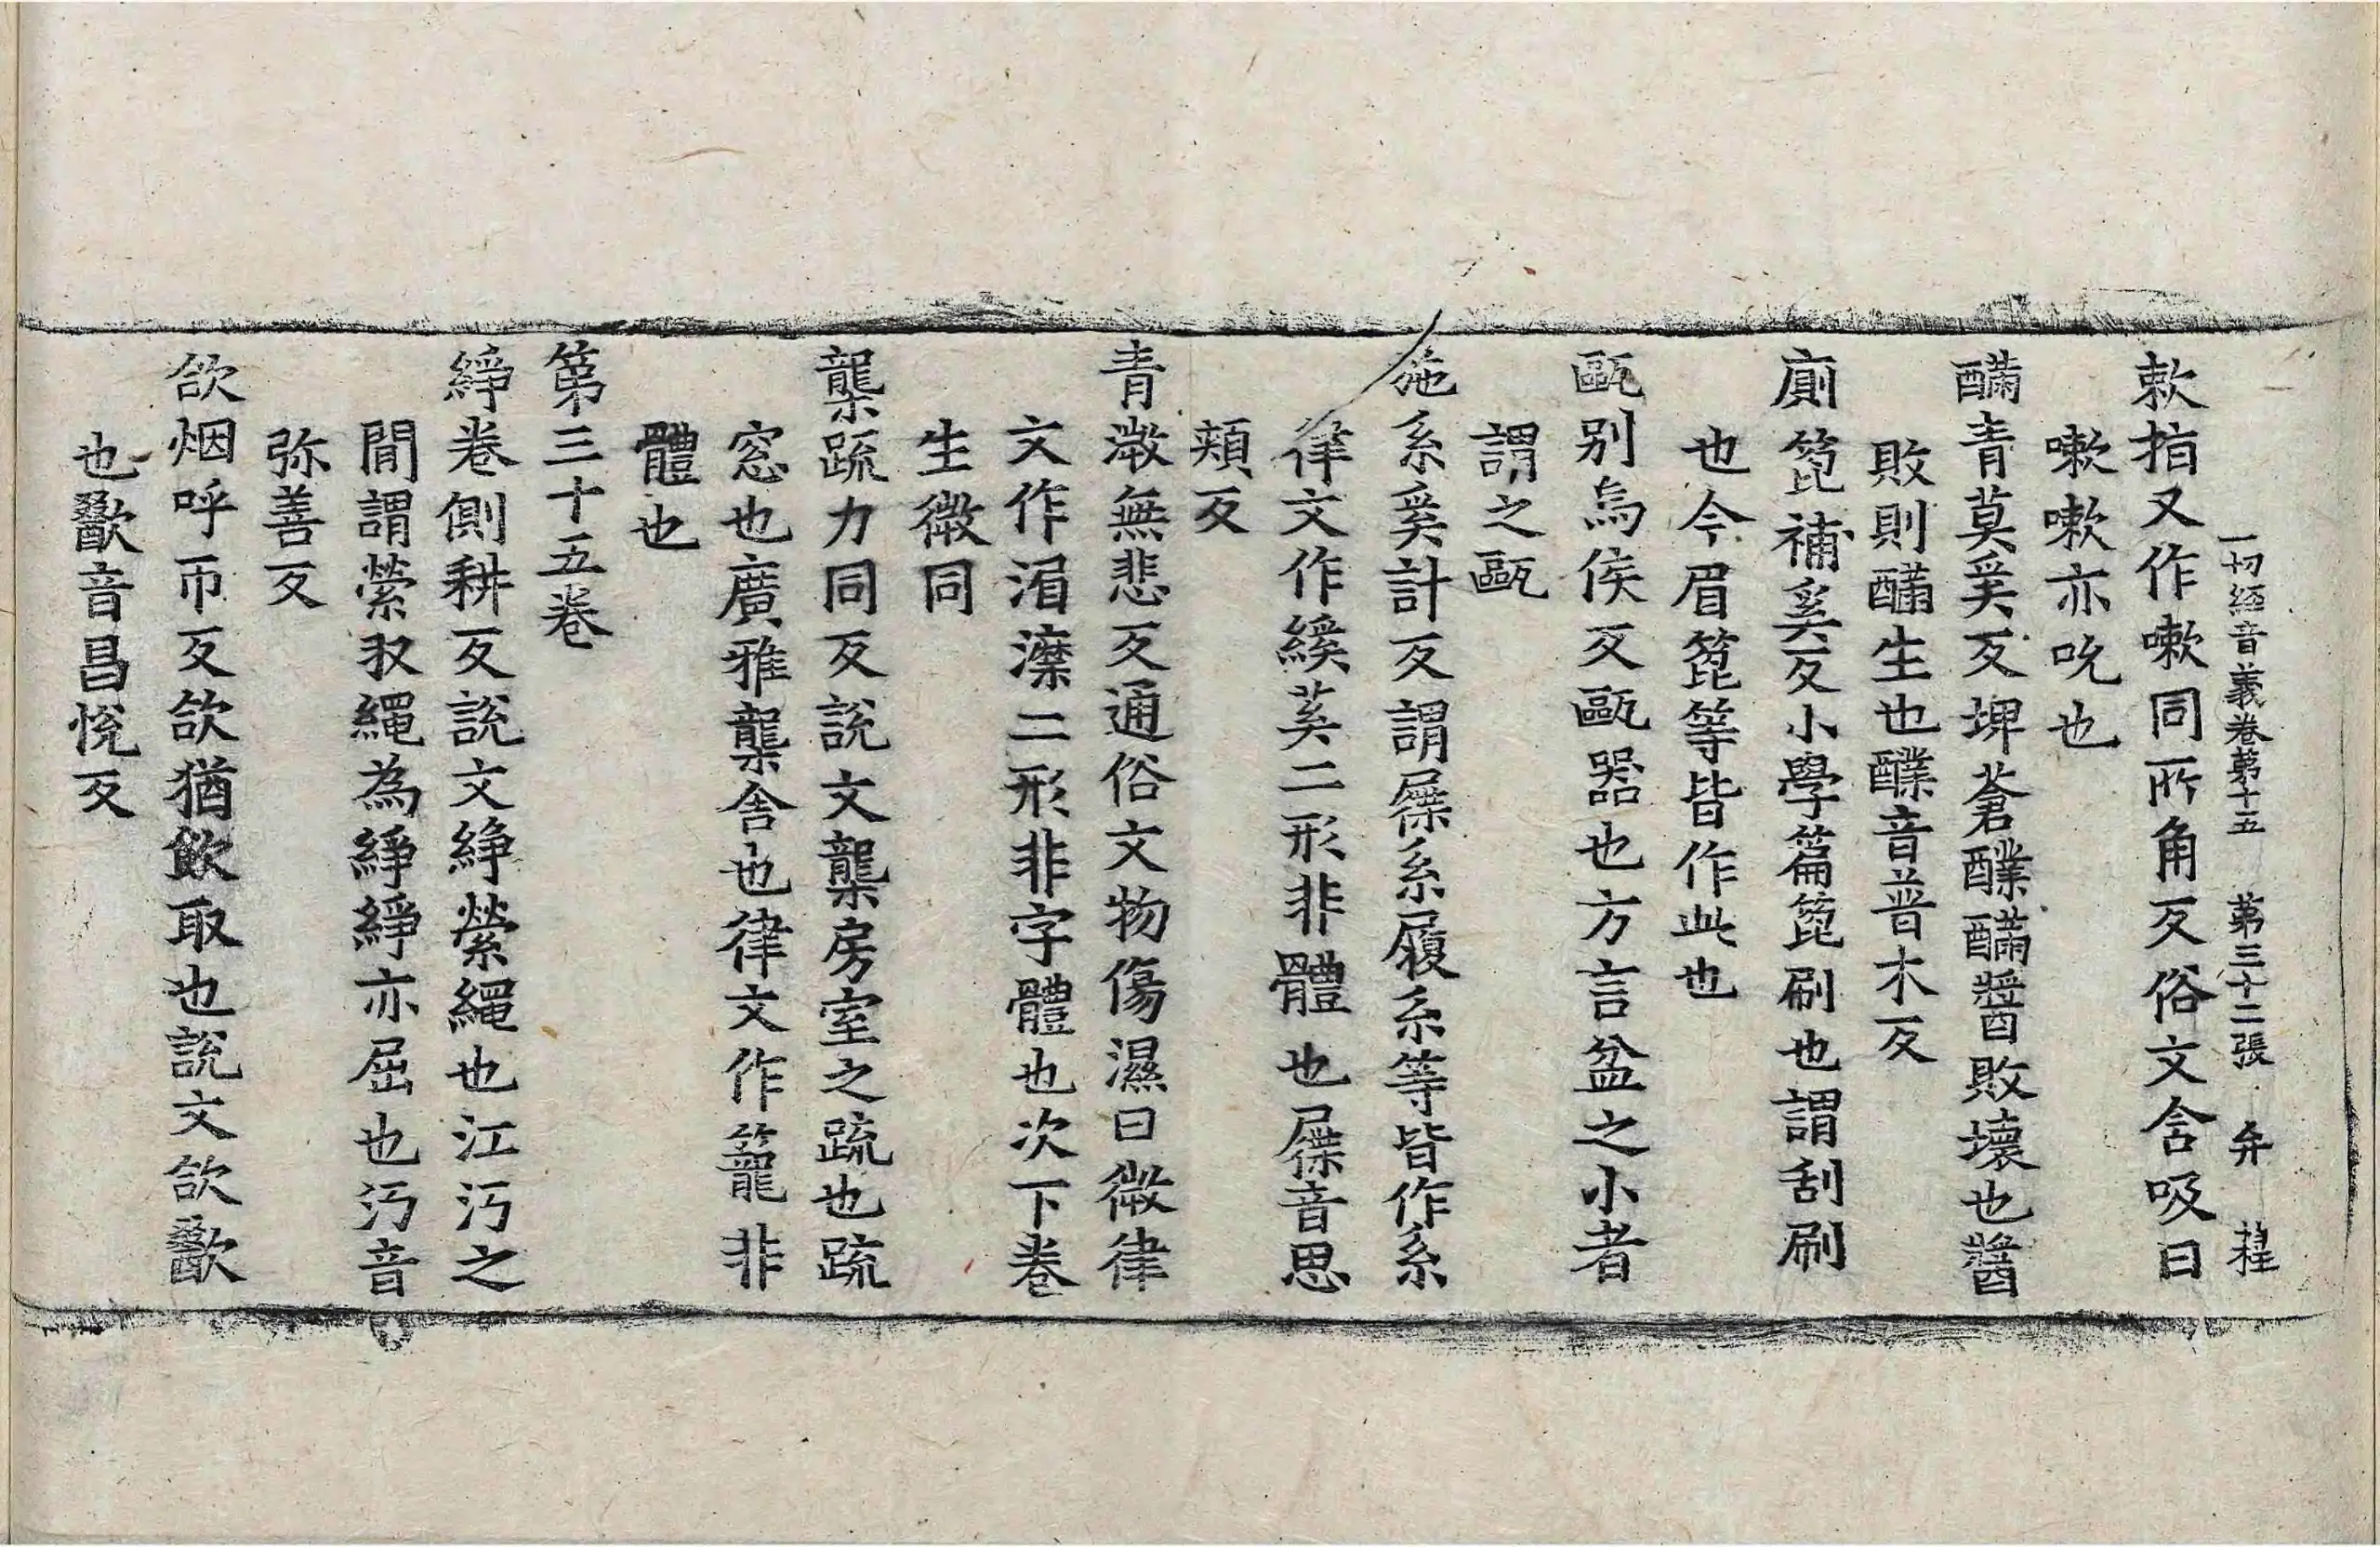 一切經音義卷第十五 第三十二張 弁 程
欶指又作嗽同所角反俗文含吸曰
嗽嗽亦吮也
䤍青莫奚反埤蒼醭䤍醬敗壞也醬
敗則䤍生也醭音普木反
廁箆補奚反小學篇箆刷也謂刮刷
也今眉箆等皆作此也
甌别烏侯反甌器也方言盆之小者
謂之甌
施系奚計反謂屧系履系等皆作系
律文作緱䒨二形非體也屧音思
頰反
青溦無悲反通俗文物傷濕曰黴律
文作湄濛二形非字體也次下卷
生黴同
櫳疏力同反說文櫳房室之疏也疏
窓也廣雅櫳舍也律文作籠非
體也
第三十五卷
綪卷側耕反說文綪縈繩也江沔之
閒謂縈収繩為綪綪亦屈也沔音
弥善反
欱烟呼帀反欱猶飲取也說文欱歠
也歠音昌悅反